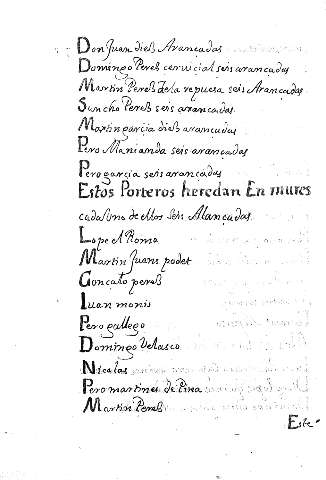 Don Juan dieß Arançadas
Domingo Pereß cervicial seis arancadas
Martin Pereß de la repuesa seis Arançadas
Sancho Pereß seis arancadas
Martin garcia dieß arancadas
Pero Manianda seis arancadas
Pero garcia seis arancadas
Estos Porteros heredan En mures
cada Uno de ellos seis Alançadas
Lope el Romo
Martin Juans podet
Gonçalo pereß
Iuan monis
Pero gallego
Domingo Velasco
Nicolas
Pero martines de Pina
Martin Pereß
Este